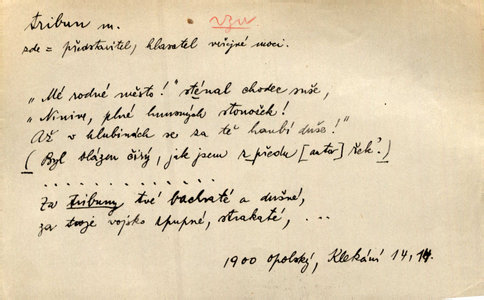 tribun m. vzu
zde = představitel, hlasatel veřejné moci.
„Mé rodné město!" sténal chodec suše,
„Ninive, plné hnusných stonožek!
Až v hlubinách se za tě hanbí duše!"
(Byl blázen čirý, jak jsem zpředu [autor] řek?)
. . . . . . . . . . . . .
Za tribuny tvé bachraté a dušné,
za tvoje vojsko zpupné, strakaté, ...
1900 Opolský, Klekání 14,